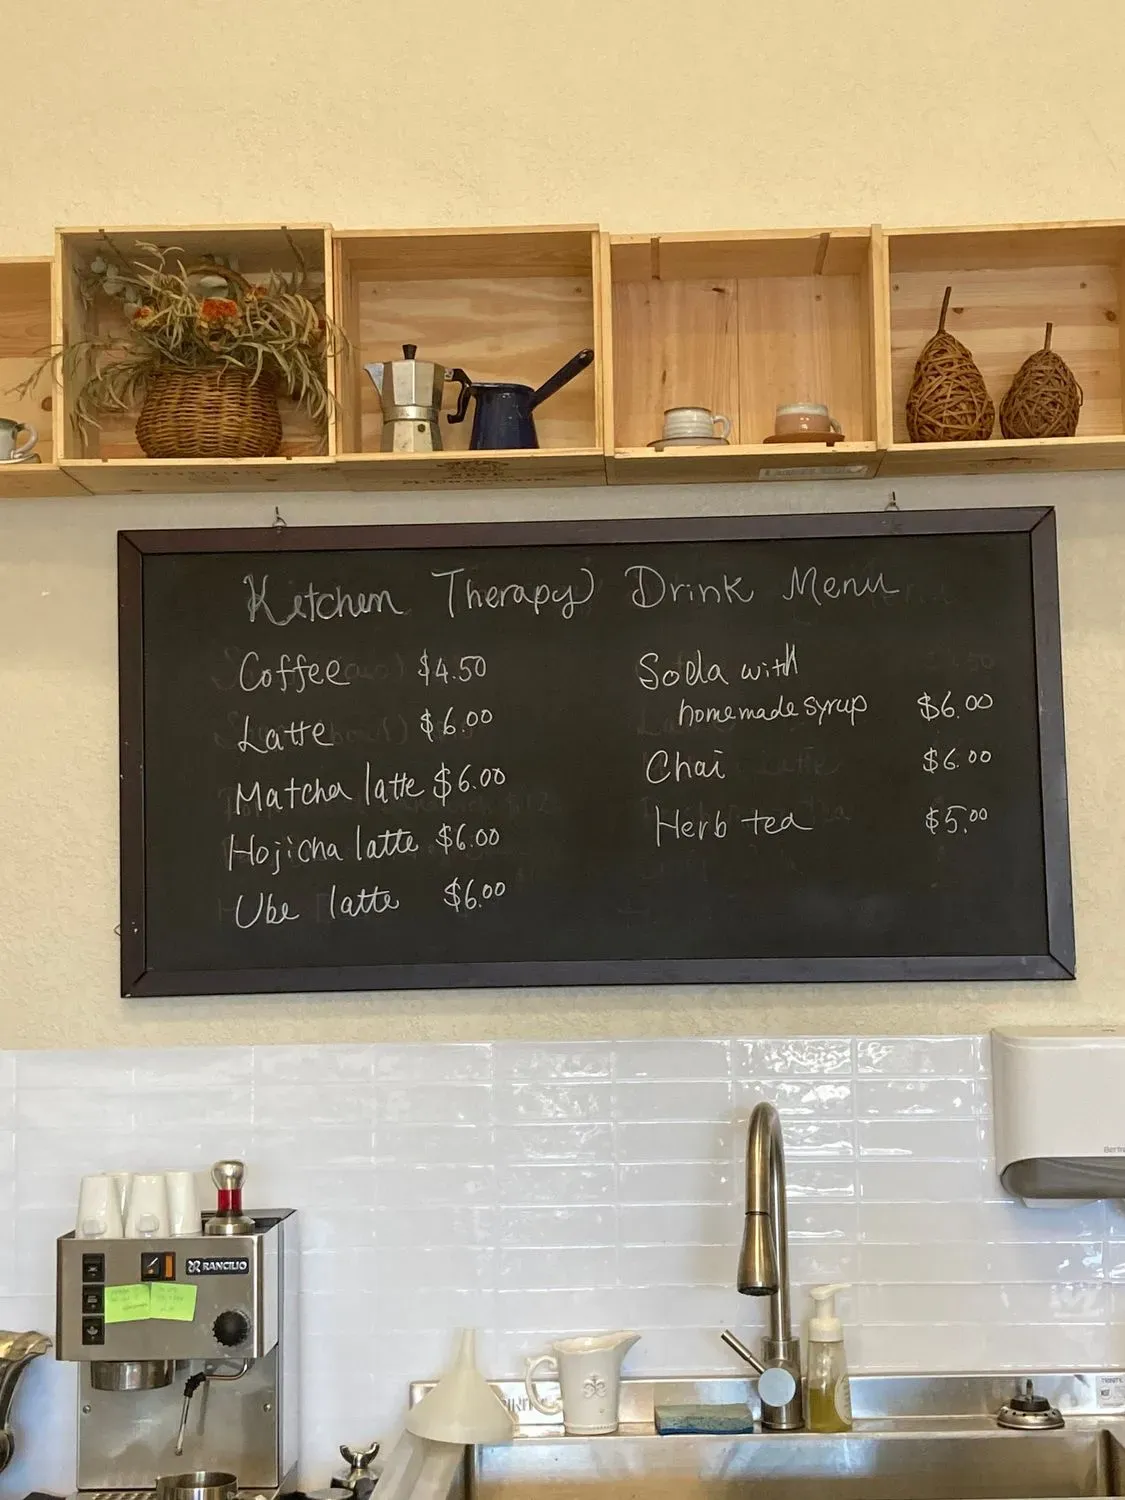 Kitchen Therapy Drink Menu
Coffee $4.50
Latte $6.00
Matcha latte $6.00
Hojicha latte $6.00
Ube latte $6.00
Soda with
homemade syrup $6.00
Chai $6.00
Herb tea $5.00
RANCILIO